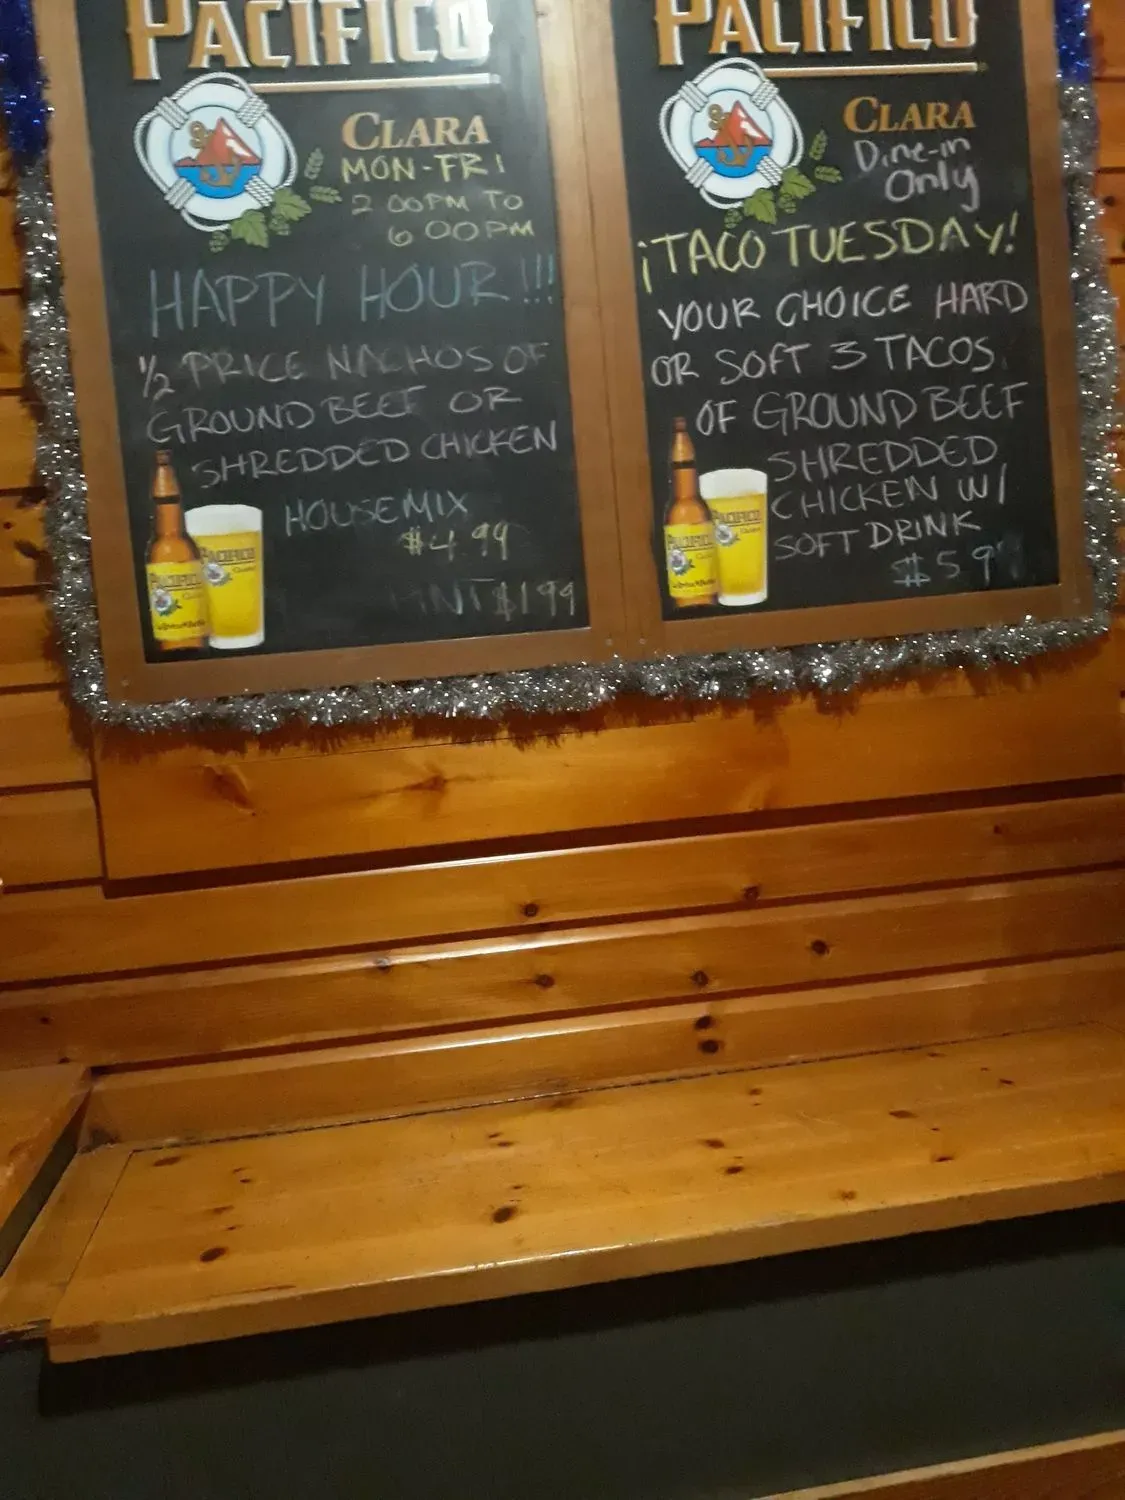 PACIFICO
CLARA
MON-FRI
2 00PM TO
6 00PM
HAPPY HOUR!!!
1/2 PRICE NACHOS OF
GROUND BEEF OR
SHREDDED CHICKEN
HOUSE MIX
$4.99
$1 99
PACIFICO
PACIFICO
PACIFICO
CLARA
Dine-in
Only
¡TACO TUESDAY!
YOUR CHOICE HARD
OR SOFT 3 TACOS
OF GROUND BEEF
SHREDDED
CHICKEN W/
SOFT DRINK
$5.9
PACIFICO
PACIFICO